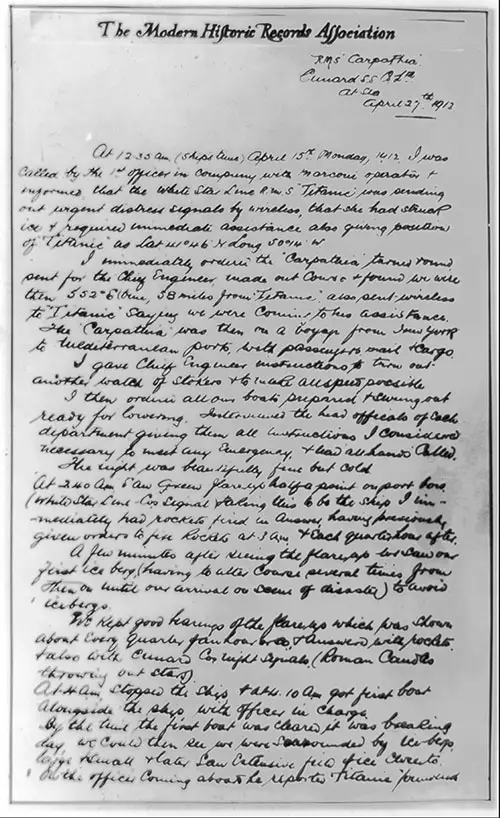 The Modern Historic Records Association
R.M.S "Carpathia"
Cunard S S Co Ltd
At Sea
April 27th 1912
At 12.35 am (ships time) April 15th Monday, 1912, I was
called by the 1st officer in company with marconi operator +
informed, that the White Star Line R.M.S "Titanic" was sending
out urgent distress signals by wireless, that she had struck
ice + required immediate assistance also giving position
of "Titanic" as Lat 41°46 N Long 50°14' W
I immediately ordered the "Carpathia" turned round
sent for the Chief Engineer, made out Course + found we were
then S 52° E (true, 58 miles from "Titanic", also sent wireless
to "Titanic" saying we were coming to his assistance.
The "Carpathia" was then on a voyage from New York
to Mediterranean ports, with passengers mail + cargo.
I gave Chief Engineer instructions to turn out
another watch of stokers + to make all speed possible
I then ordered all our boats prepared + swung out
ready for lowering. Interviewed the head officials of each
department giving them all instructions I considered
necessary to meet any Emergency, + had all hands called.
The night was beautifully fine but cold
At 2.40 am saw Green flare, half a point on port bow,
(White Star Line Cos Signal + taking this to be the ship I im-
mediately had rockets fired in answer, having previously
given orders to fire Rockets at 3 am. + Each quarter hour after.
A few minutes after seeing the flare, we saw our
first ice berg, (having to alter course several times from
then on until our arrival on scene of disaster) to avoid
icebergs.
We kept good bearings of the flare which was shown
about Every quarter of an hour + answered with rockets
+ also with Cunard Cos night signals (Roman Candles
throwing out stars)
At 4 am stopped the ship, + at 4.10 am got first boat
alongside the ship with officer in charge
By the time the first boat was cleared it was breaking
day, we could then see we were surrounded by ice bergs,
large + small + later saw Extensive field of ice
On the officer coming aboard he reported Titanic foundered